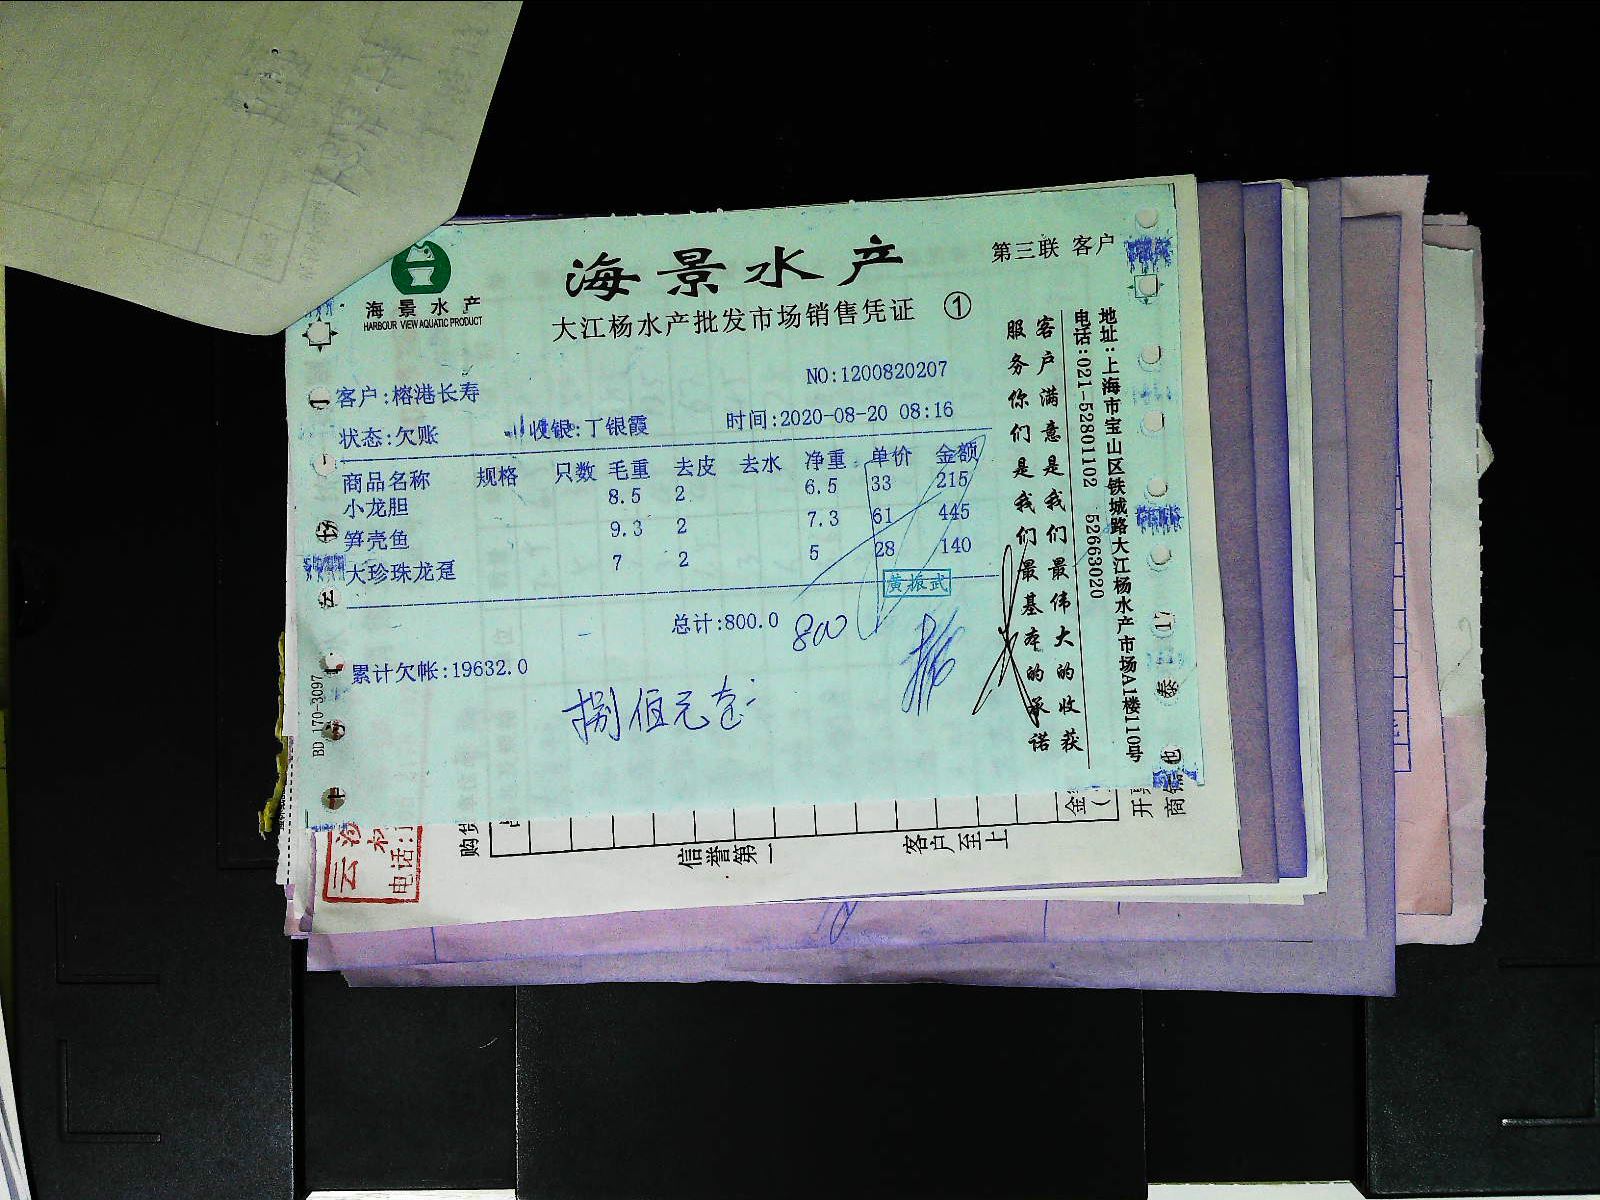 海景水产
HARBOUR VIEW AQUATIC PRODUCT
海景水产
第三联 客户
大江杨水产批发市场销售凭证 ①
NO:1200820207
客户:榕港长寿
状态:欠账 收银:丁银霞 时间:2020-08-20 08:16
商品名称 规格 只数 毛重 去皮 去水 净重 单价 金额
小龙胆 8.5 2 6.5 33 215
笋壳鱼 9.3 2 7.3 61 445
大珍珠龙趸 7 2 5 28 140
黄振武
总计:800.0 800
累计欠帐:19632.0
捌佰元
客户满意是我们最伟大的收获
服务你们是我们最基本的承诺
地址:上海市宝山区铁城路大江杨水产市场A1楼110号
电话:021-52801102 52663020
BD 170-3097
信誉第一
客户至上
电话: